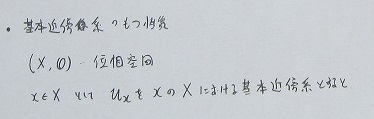 ・基本近傍系のもつ性質
(X, O) 位相空間
x∈X として Uxを x の X における基本近傍系とすると